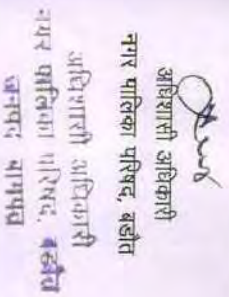 अधिशासी अधिकारी
नगर पालिका परिषद, बड़ौत
अधिशासी अधिकारी
नगर पालिका परिषद, बड़ौत
जनपद बागपत